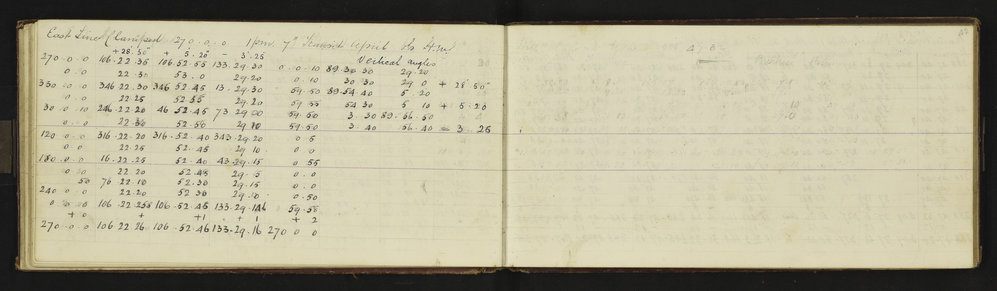 East Line Clamped 270.0.0 1 pm 7th
+28.50 + 5.20 - 3.25
Vertical angles
270.0.0 106.22.35 106.52.55 133.29.30 0.0.10 89.30.30 29.20
0.0 22.30 53.0 29.20 0.10 30.30 29.0 + 28.50
330.0.0 346.22.30 346.52.45 13.29.30 59.50 89.54.40 5.20
0.0 22.25 52.55 29.20 59.55 54.30 5.10 + 5.20
30.0.10 246.22.20 46.52.45 73.29.00 59.50 3.30 89.56.50
0.0 22.30 52.50 29.10 59.50 3.40 56.40 = 3.25
120.0.0 316.22.20 316.52.40 343.29.20 0.5
0.0 22.25 52.45 29.10 0.0
180.0.0 16.22.25 52.40 43.29.15 0.55
0.0 22.20 52.45 29.5 0.0
50 76.22.10 52.30 29.15 0.0
240.0.0 22.20 52.30 29.0 0.50
0.0.0 106.22.25 106.52.45 133.29.16 59.55
+0 + +1 + 1 + 2
270.0.0 106.22.26 106.52.46 133.29.16 270.0.0